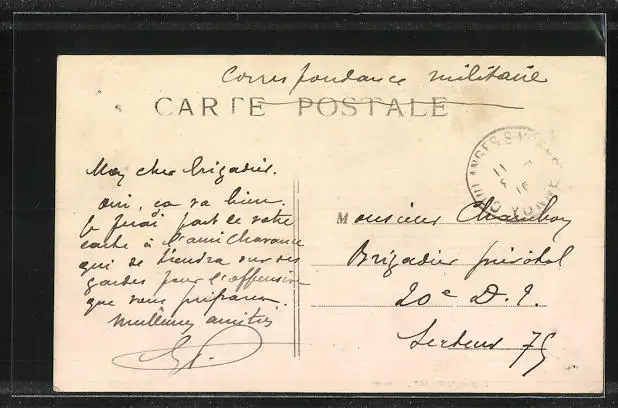 Correspondance militaire
CARTE POSTALE
Mon cher brigadier.
oui, ça va bien.
Je ferai part de votre
carte à l'ami Chavance
qui se tiendra sur ses
gardes pour l'offensive
que vous préparez.
Meilleures amitiés
COULANGES S YONNE
YONNE
Monsieur
Brigadier prévôtal
20e D. I.
Secteur 75